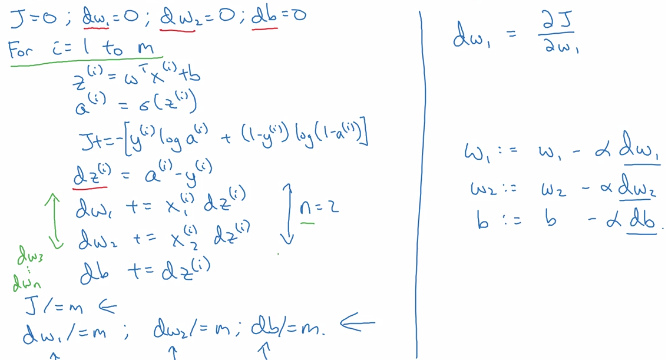 J=0 ; dw₁=0 ; dw₂=0 ; db=0
For i=1 to m
z⁽ⁱ⁾ = wᵀx⁽ⁱ⁾+b
a⁽ⁱ⁾ = σ(z⁽ⁱ⁾)
J+=-[y⁽ⁱ⁾ log a⁽ⁱ⁾ + (1-y⁽ⁱ⁾) log(1-a⁽ⁱ⁾)]
dz⁽ⁱ⁾ = a⁽ⁱ⁾-y⁽ⁱ⁾
dw₁ += x₁⁽ⁱ⁾ dz⁽ⁱ⁾
dw₂ += x₂⁽ⁱ⁾ dz⁽ⁱ⁾
db += dz⁽ⁱ⁾
n=2
dw₃
⋮
dwₙ
J/=m ←
dw₁/=m ; dw₂/=m ; db/=m. ←
dw₁ = ∂J/∂w₁
w₁ := w₁ - α dw₁
w₂ := w₂ - α dw₂
b := b - α db.